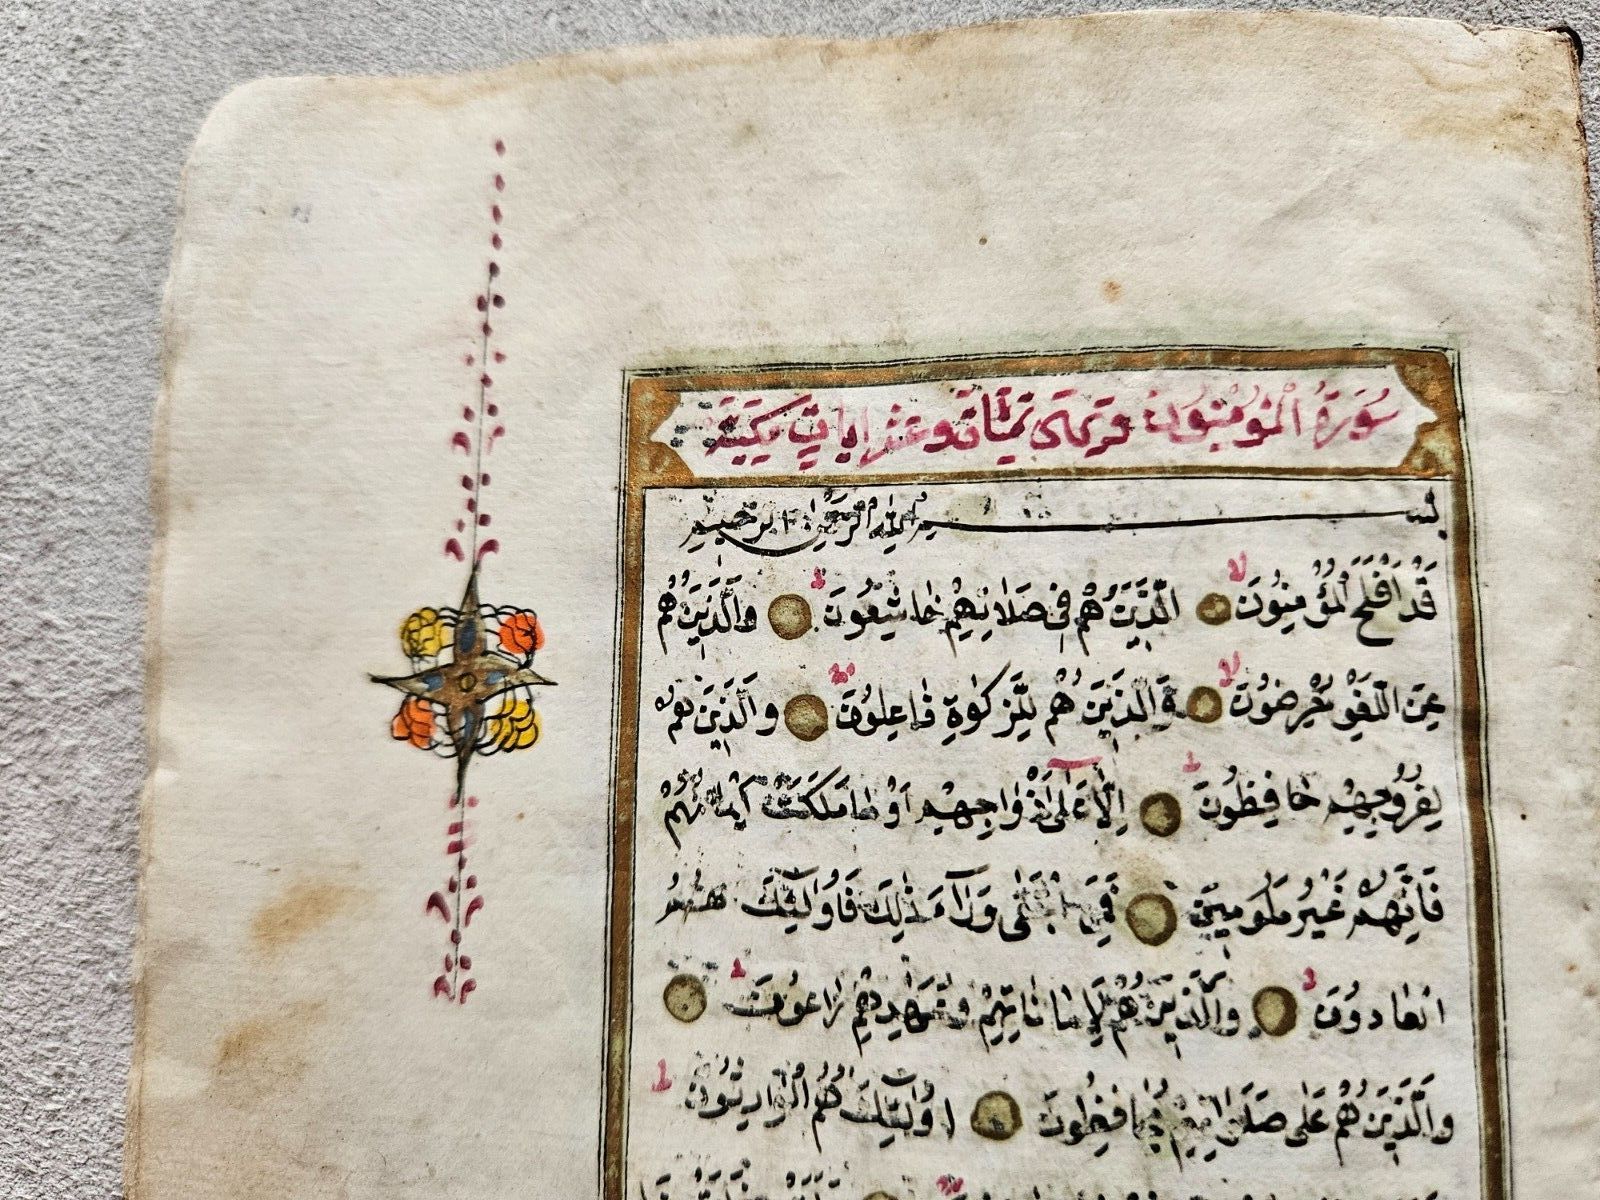 سُورَةُ الْمُؤْمِنُونَ وَهِيَ مِائَة وَعَشْر اٰيَاتٍ مَكِّيَّة
بِسْمِ اللّٰهِ الرَّحْمٰنِ الرَّحِيمِ
قَدْ اَفْلَحَ الْمُؤْمِنُونَ لا الَّذِينَ هُمْ فِى صَلَاتِهِمْ خَاشِعُونَ وَالَّذِينَ هُمْ
عَنِ اللَّغْوِ مُعْرِضُونَ لا وَالَّذِينَ هُمْ لِلزَّكٰوةِ فَاعِلُونَ وَالَّذِينَ هُمْ
لِفُرُوجِهِمْ حَافِظُونَ اِلَّا عَلٰى اَزْوَاجِهِمْ اَوْ مَا مَلَكَتْ اَيْمَانُهُمْ
فَاِنَّهُمْ غَيْرُ مَلُومِينَ فَمَنِ ابْتَغٰى وَرَآءَ ذٰلِكَ فَاُولٰئِكَ هُمُ
الْعَادُونَ وَالَّذِينَ هُمْ لِاَمَانَاتِهِمْ وَعَهْدِهِمْ رَاعُونَ
وَالَّذِينَ هُمْ عَلٰى صَلَوَاتِهِمْ يُحَافِظُونَ اُولٰئِكَ هُمُ الْوَارِثُونَ